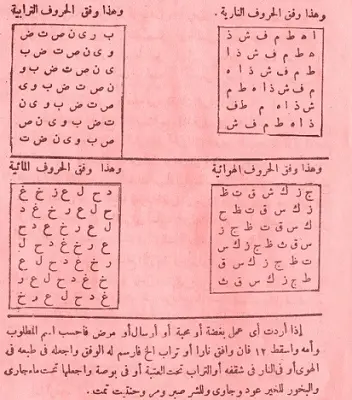 وهذا وفق الحروف النارية .
ا ه ط م ف ش ذ
ه ط م ف ش ذ ا
ط م ف ش ذ ا ه
م ف ش ذ ا ه ط
ف ش ذ ا ه ط م
ش ذ ا ه م ط ف
ذ ا ه ط م ف ش
وهذا وفق الحروف الترابية
ب و ى ن ص ت ض
و ى ن ص ت ض ب
ى ن ص ت ض ب و
ن ص ت ض ب و ى
ص ت ض ب و ى ن
ت ض ب و ى ن ص
ض ب و ى ن ص ت
وهذا وفق الحروف الهوائية
ج ز ك س ق ث ظ
ز ك س ق ث ظ ج
ك س ق ث ظ ج ز
س ق ث ظ ج ز ك
ق ث ظ ج ز ك س
ث ظ ج ز ك س ق
ظ ج ز ك س ق ث
وهذا وفق الحروف المائية
د ح ل ع ر خ غ
ح ل ع ر خ غ د
ل ع ر خ غ د ح
ع ر خ غ د ح ل
ر خ غ د ح ل ع
خ غ د ح ل ع ر
غ د ح ل ع ر خ
إذا أردت أى عمل بغضة أو محبة أو أرسال أو مرض فاحسب اسم المطلوب
وأمه واسقط ١٢ فان وافق نارا أو تراب الخ فارسم له الوفق واجعله فى طبعه فى
الهوى أو فى النار فى شقفه أو التراب تحت العتبة أو فى بوصة واجعلها تحت ماء جارى
والبخور للخير عود وجاوى وللشر صبر ومر وحنتيت تمت .